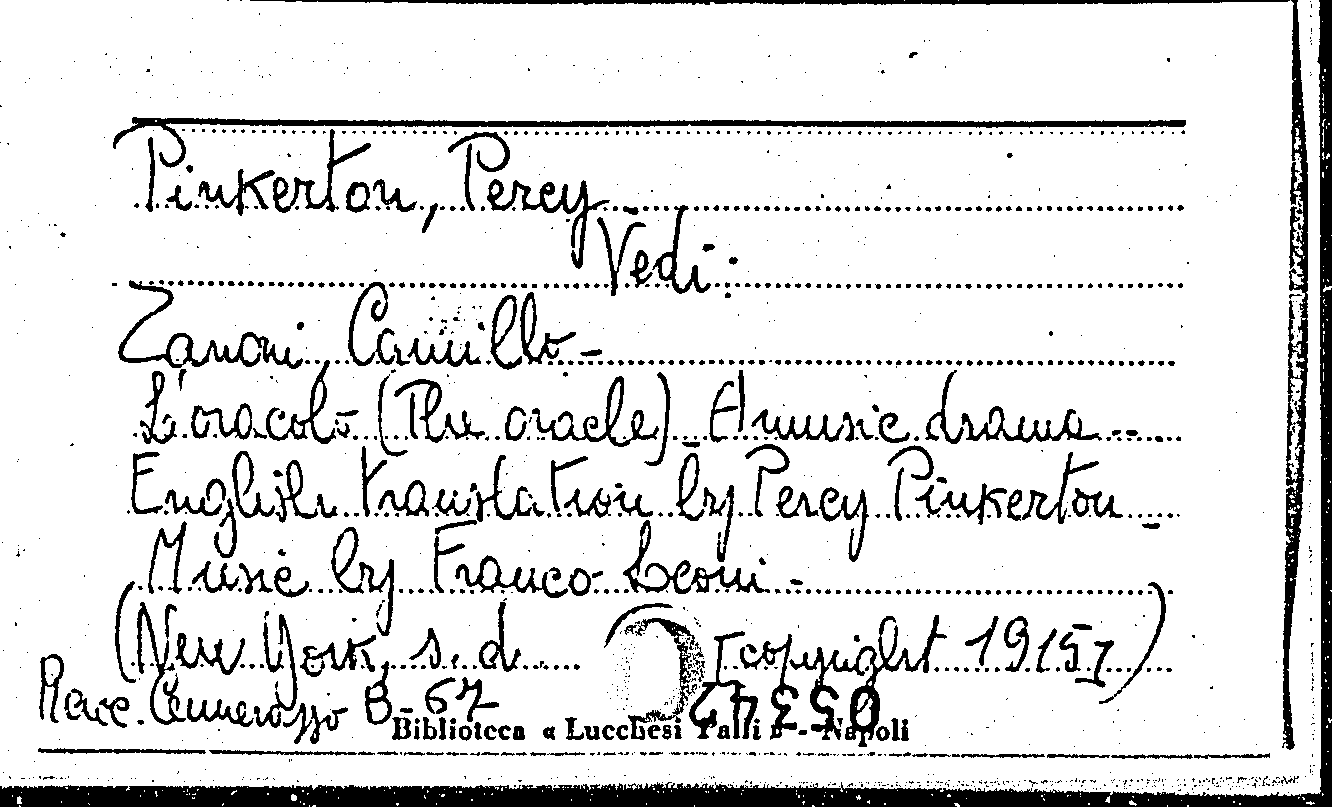 Pinkerton, Percy -
Vedi:
Zanoni, Camillo -
L'oracolo (The oracle) - A music drama -
English translation by Percy Pinkerton -
Music by Franco Leoni -
(New York, s. d. [copyright 1915])
Racc. Cennerazzo B-67
Biblioteca « Lucchesi Palli » - Napoli